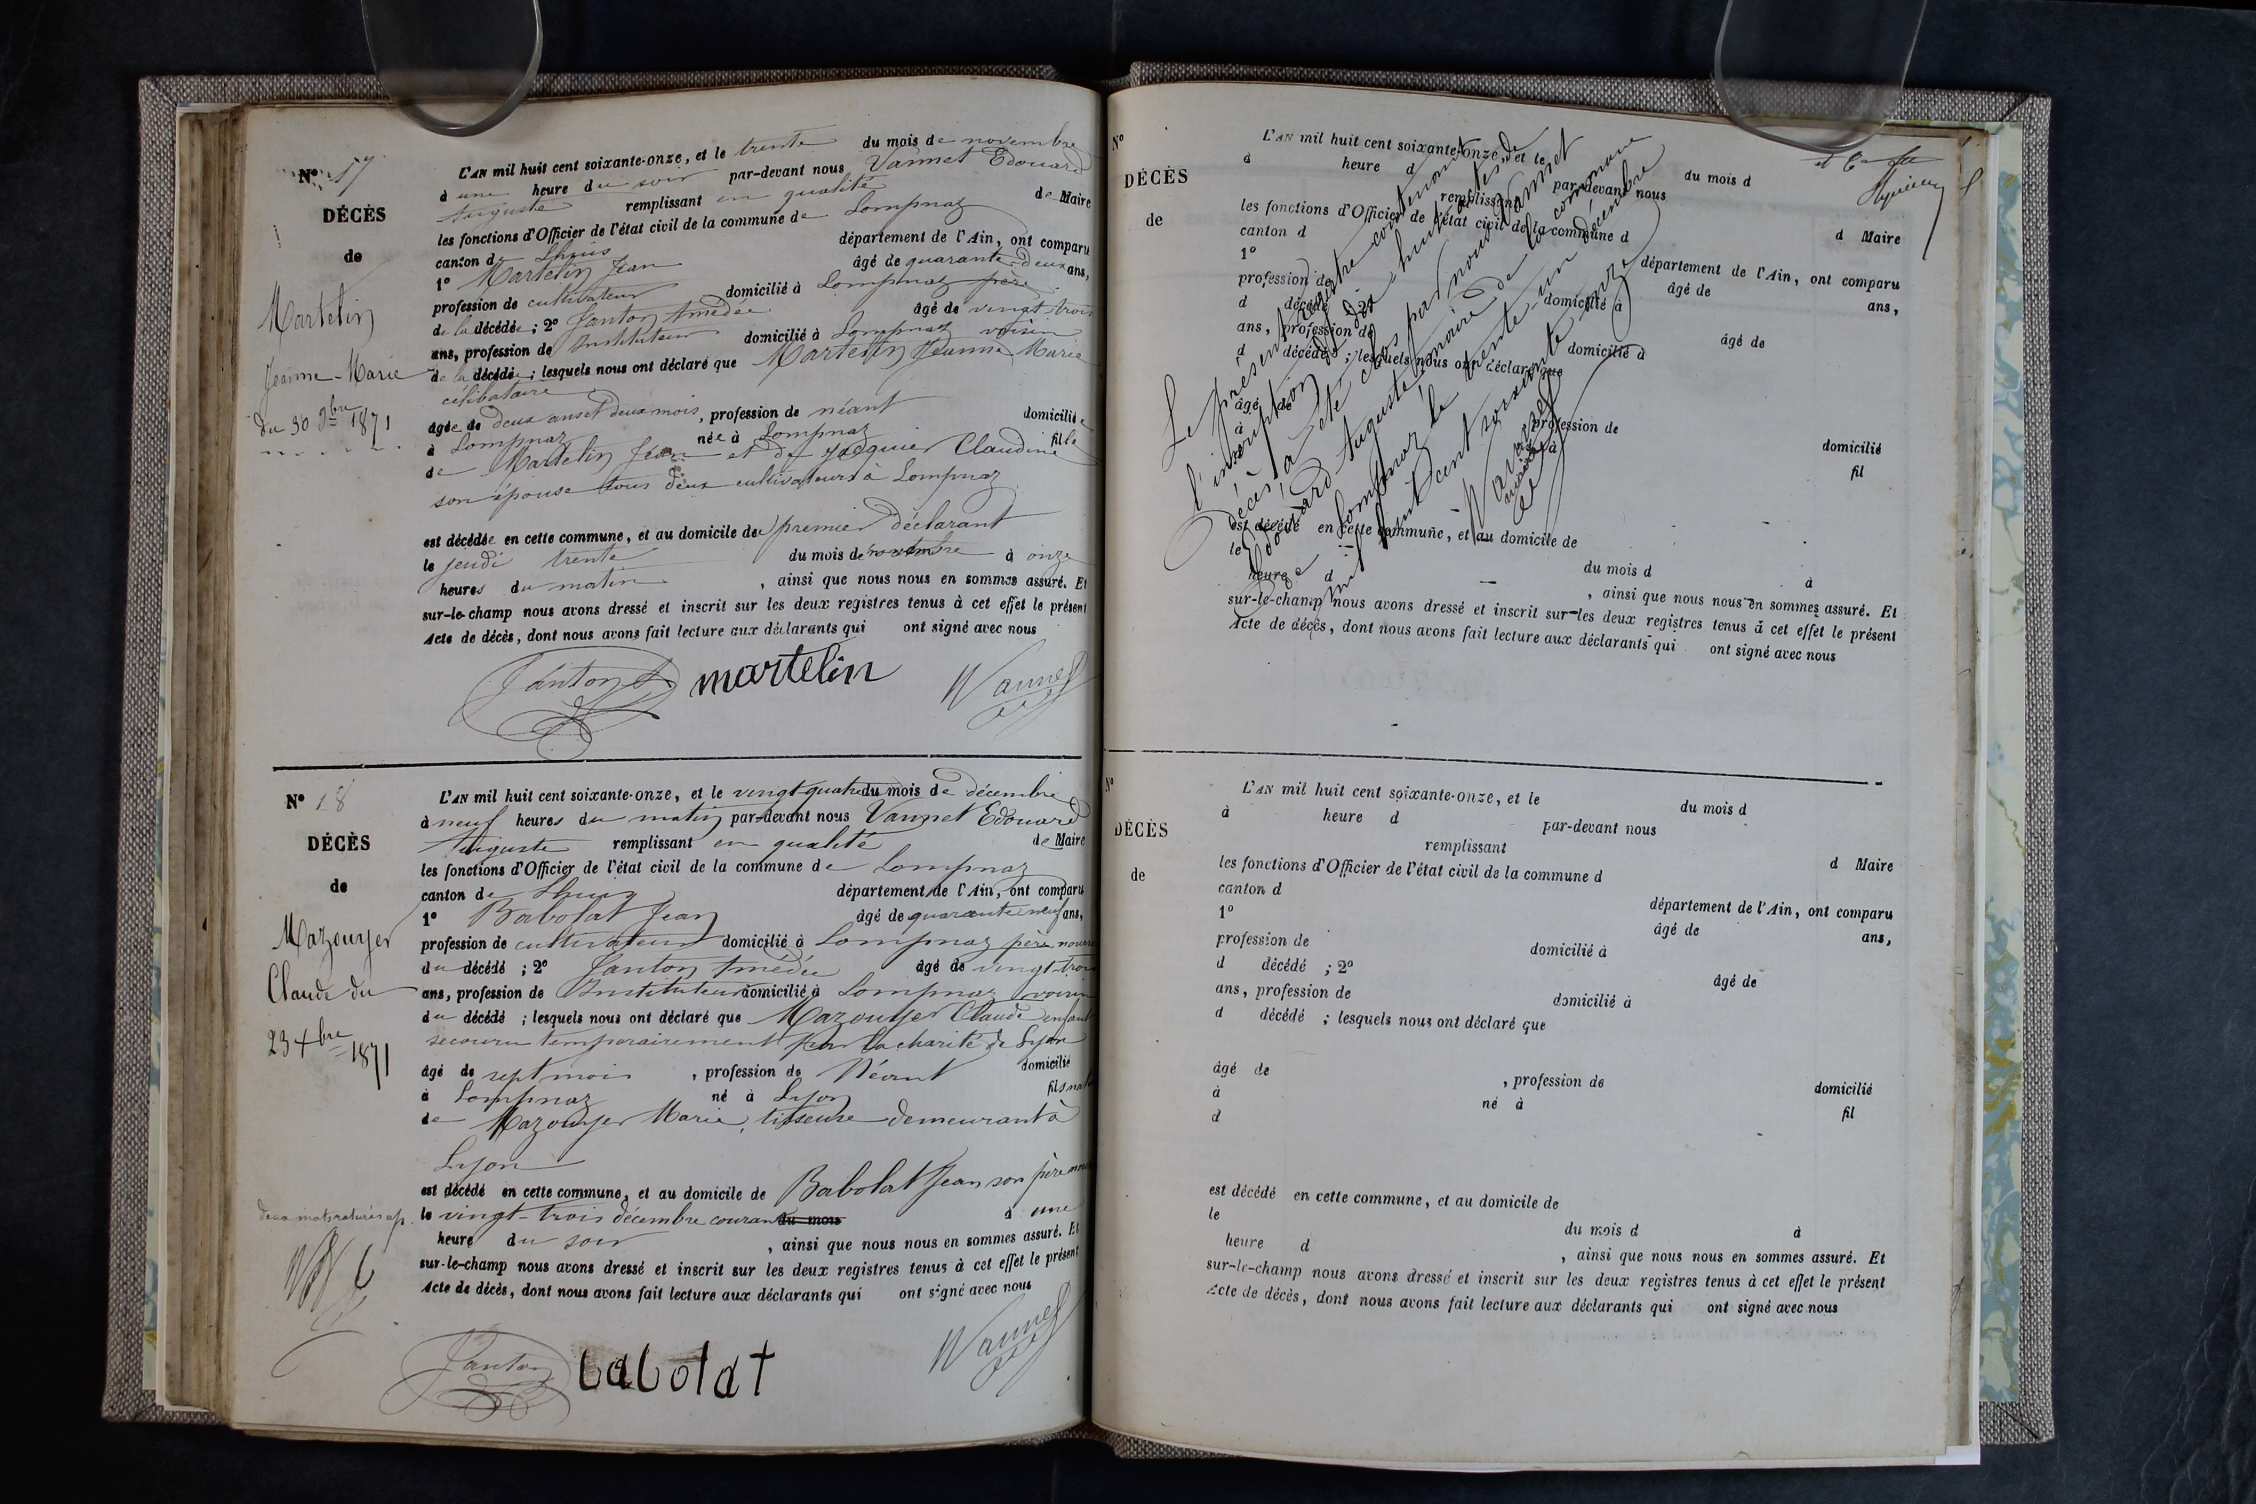 N° 17
DÉCÈS
de
Martelin
Jeanne-Marie
du 30 9bre 1871
L'AN mil huit cent soixante-onze, et le trente du mois de novembre
à une heure du soir par-devant nous Vannet Edouard
Auguste remplissant en qualité de Maire
les fonctions d'Officier de l'état civil de la commune de Lompnaz
canton de Lhuis département de l'Ain, ont comparu
1° Martelin Jean âgé de quarante-deux ans,
profession de cultivateur domicilié à Lompnaz père
de la décédée ; 2° Janton Amédée âgé de vingt-trois
ans, profession de Instituteur domicilié à Lompnaz voisin
de la décédée ; lesquels nous ont déclaré que Martelin Jeanne Marie
célibataire
âgée de deux ans et deux mois, profession de néant domiciliée
à Lompnaz née à Lompnaz fille
de Martelin Jean et de Jacquier Claudine
son épouse tous deux cultivateurs à Lompnaz
est décédée en cette commune, et au domicile du premier déclarant
le jeudi trente du mois de novembre à onze
heures du matin, ainsi que nous nous en sommes assuré. Et
sur-le-champ nous avons dressé et inscrit sur les deux registres tenus à cet effet le présent
Acte de décès, dont nous avons fait lecture aux déclarants qui ont signé avec nous
Janton martelin Vannet
N° 18
DÉCÈS
de
Mazouyer
Claude du
23 xbre 1871
L'AN mil huit cent soixante-onze, et le vingt-quatre du mois de décembre
à neuf heures du matin par-devant nous Vannet Edouard
Auguste remplissant en qualité de Maire
les fonctions d'Officier de l'état civil de la commune de Lompnaz
canton de Lhuis département de l'Ain, ont comparu
1° Babolat Jean âgé de quarante-neuf ans,
profession de cultivateur domicilié à Lompnaz père nourri
du décédé ; 2° Janton Amédée âgé de vingt-trois
ans, profession de Instituteur domicilié à Lompnaz voisin
du décédé ; lesquels nous ont déclaré que Mazouyer Claude enfant
secouru temporairement par la charité de Lyon
âgé de sept mois, profession de Néant domicilié
à Lompnaz né à Lyon fils nat
de Mazouyer Marie, tisseuse demeurant à
Lyon
est décédé en cette commune, et au domicile de Babolat Jean son père
le vingt-trois décembre courant du mois à une
heure du soir, ainsi que nous nous en sommes assuré. Et
sur-le-champ nous avons dressé et inscrit sur les deux registres tenus à cet effet le présent
Acte de décès, dont nous avons fait lecture aux déclarants qui ont signé avec nous
deux mots raturés ap.
Janton babolat Vannet
N°
DÉCÈS
de
L'AN mil huit cent soixante-onze, et le du mois d
à heure d par-devant nous
remplissant d Maire
les fonctions d'Officier de l'état civil de la commune d
canton d département de l'Ain, ont comparu
1° âgé de ans,
profession de domicilié à
d décédé ; 2° âgé de
ans, profession de domicilié à
d décédé ; lesquels nous ont déclaré que
âgé de , profession de domicilié
à né à fil
est décédé en cette commune, et au domicile de
le du mois d à
heure d , ainsi que nous nous en sommes assuré. Et
sur-le-champ nous avons dressé et inscrit sur les deux registres tenus à cet effet le présent
Acte de décès, dont nous avons fait lecture aux déclarants qui ont signé avec nous
Le présent registre contenant
l'inscription de dix huit actes de
décès, a été clos par nous Vannet
Edouard Auguste maire de la commune
de Lompnaz le trente-un décembre
mil huit cent soixante onze
Vannet
maire
N°
DÉCÈS
de
L'AN mil huit cent soixante-onze, et le du mois d
à heure d par-devant nous
remplissant d Maire
les fonctions d'Officier de l'état civil de la commune d
canton d département de l'Ain, ont comparu
1° âgé de ans,
profession de domicilié à
d décédé ; 2° âgé de
ans, profession de domicilié à
d décédé ; lesquels nous ont déclaré que
âgé de , profession de domicilié
à né à fil
d
est décédé en cette commune, et au domicile de
le du mois d à
heure d , ainsi que nous nous en sommes assuré. Et
sur-le-champ nous avons dressé et inscrit sur les deux registres tenus à cet effet le présent
Acte de décès, dont nous avons fait lecture aux déclarants qui ont signé avec nous